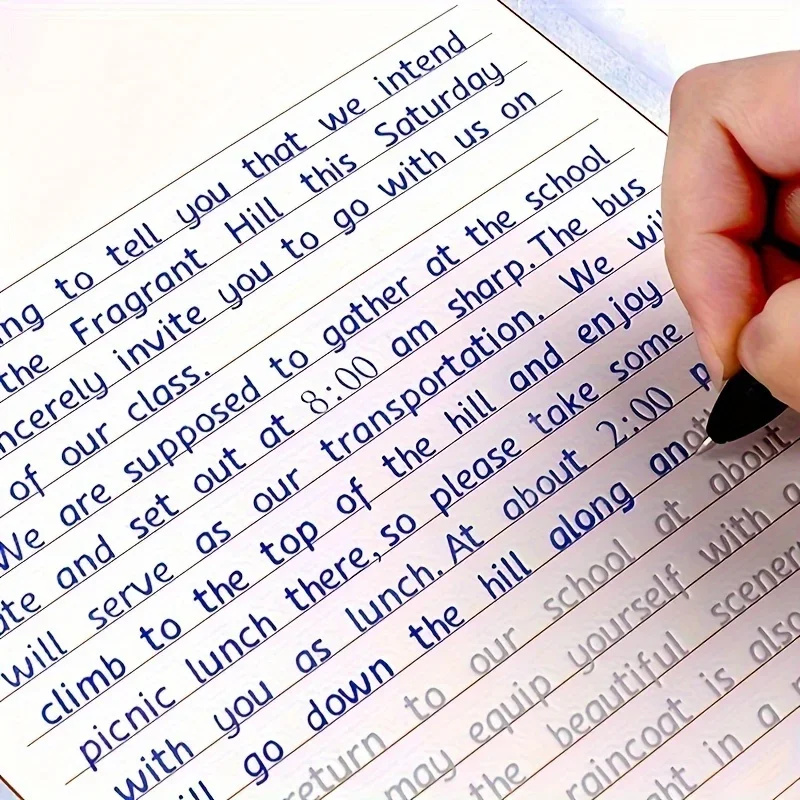 ng to tell you that we intend
the Fragrant Hill this Saturday
ncerely invite you to go with us on
of our class.
We are supposed to gather at the school
ate and set out at 8:00 am sharp. The bus
will serve as our transportation. We wi
climb to the top of the hill and enjoy
picnic lunch there, so please take some
with you as lunch. At about 2:00 p
ll go down the hill along anoth
return to our school at about
may equip yourself with a
the beautiful scenery
raincoat is also
ht in a